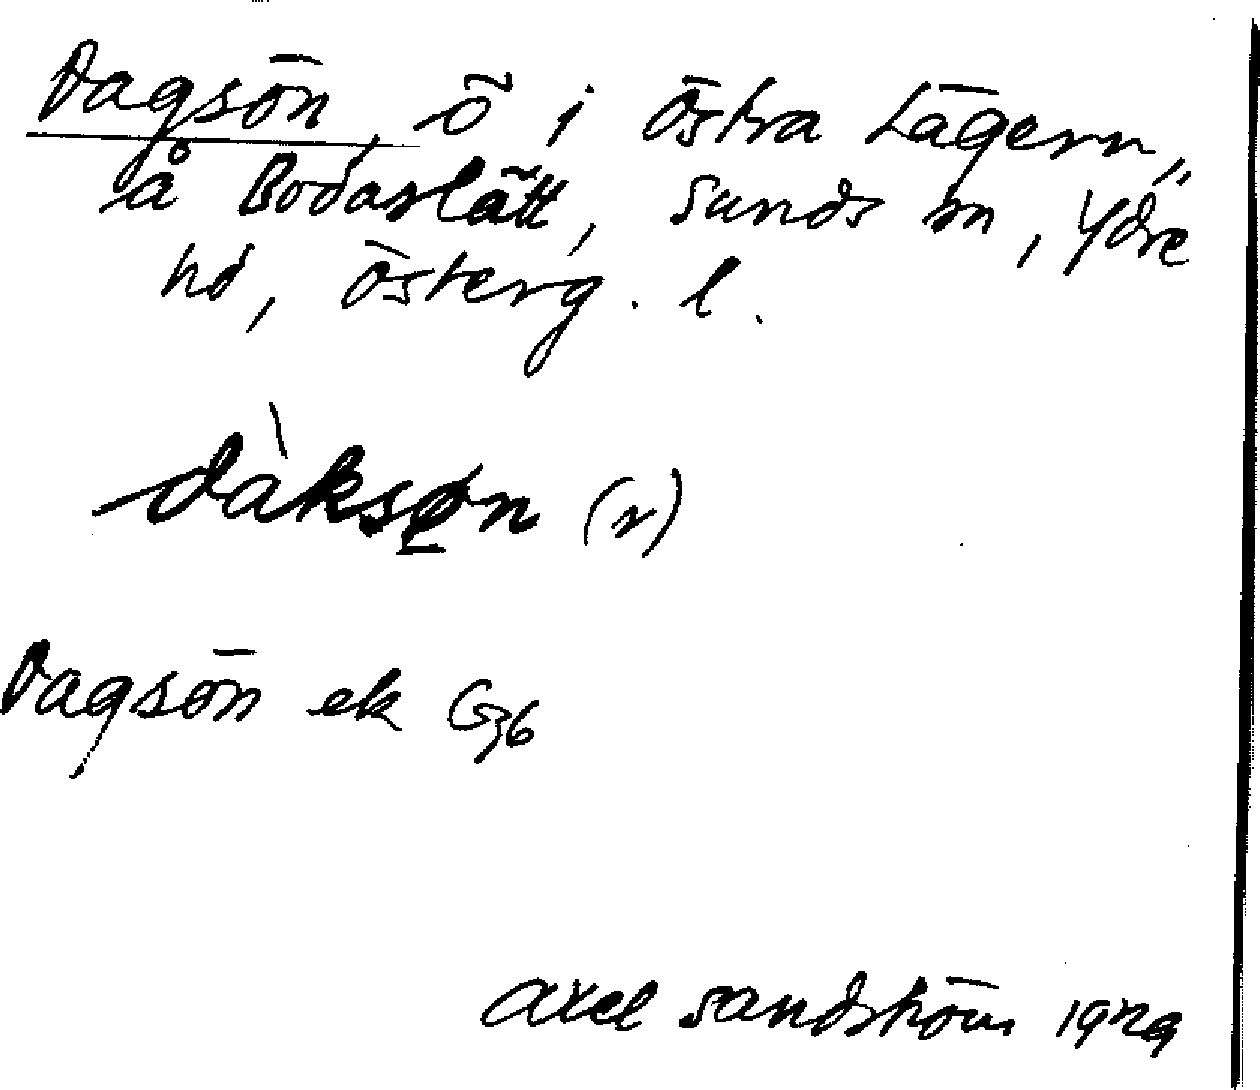 Dagsön, ö i Östra Lägern,
å Bodaslätt, Sunds sn, Ydre
hd, Österg. l.
dàksøn (r)
Dagsön ek G36
Axel Sandström 1929